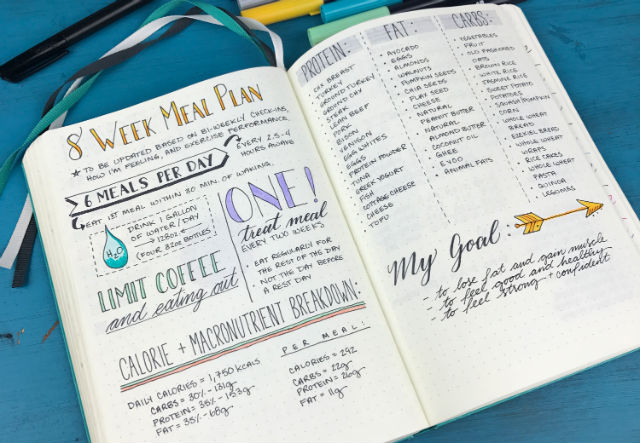 8 WEEK MEAL PLAN
★ TO BE UPDATED BASED ON BI-WEEKLY CHECK-INS,
HOW I'M FEELING, AND EXERCISE PERFORMANCE.
6 MEALS PER DAY
EVERY 2.5-4
HOURS AWAKE
EAT 1ST MEAL WITHIN 30 MIN. OF WAKING.
H2O
DRINK 1 GALLON
OF WATER / DAY
128oz
FOUR 32oz BOTTLES
ONE!
treat meal
EVERY TWO WEEKS
• EAT REGULARLY FOR
THE REST OF THE DAY
• NOT THE DAY BEFORE
A REST DAY
LIMIT COFFEE
and eating out
CALORIE + MACRONUTRIENT BREAKDOWN:
DAILY CALORIES = 1,750 KCALS
CARBS = 30% - 131g
PROTEIN = 35% - 153g
FAT = 35% - 68g
PER MEAL:
CALORIES = 292
CARBS = 22g
PROTEIN = 26g
FAT = 11g
PROTEIN:
BREAST
TURKEY
GROUND TURKEY
GROUND
STEAK
LEAN BEEF
PORK
BISON
VENISON
EGG WHITES
EGGS
PROTEIN POWDER
TUNA
FISH
GREEK YOGURT
COTTAGE CHEESE
CHEESE
TOFU
FAT:
• AVOCADO
• EGGS
• ALMONDS
• WALNUTS
• PUMPKIN SEEDS
• CHIA SEEDS
SEED
• CHEESE
• NATURAL
PEANUT BUTTER
• NATURAL
ALMOND BUTTER
• COCONUT OIL
• GHEE
• EVOO
• ANIMAL FATS
CARBS:
• VEGETABLES
• FRUIT
• OLD FASHIONED
OATS
• BROWN RICE
• WHITE RICE
• JASMINE RICE
• SWEET POTATO
• POTATOES
• SQUASH/PUMPKIN
• CORN
• WHOLE WHEAT
BREAD
• EZEKIEL BREAD
• WHOLE WHEAT
WRAPS
• RICE CAKES
• WHOLE WHEAT
PASTA
• QUINOA
• LEGUMES
My Goal:
- to lose fat and gain muscle
- to feel good and healthy
- to feel strong + confident